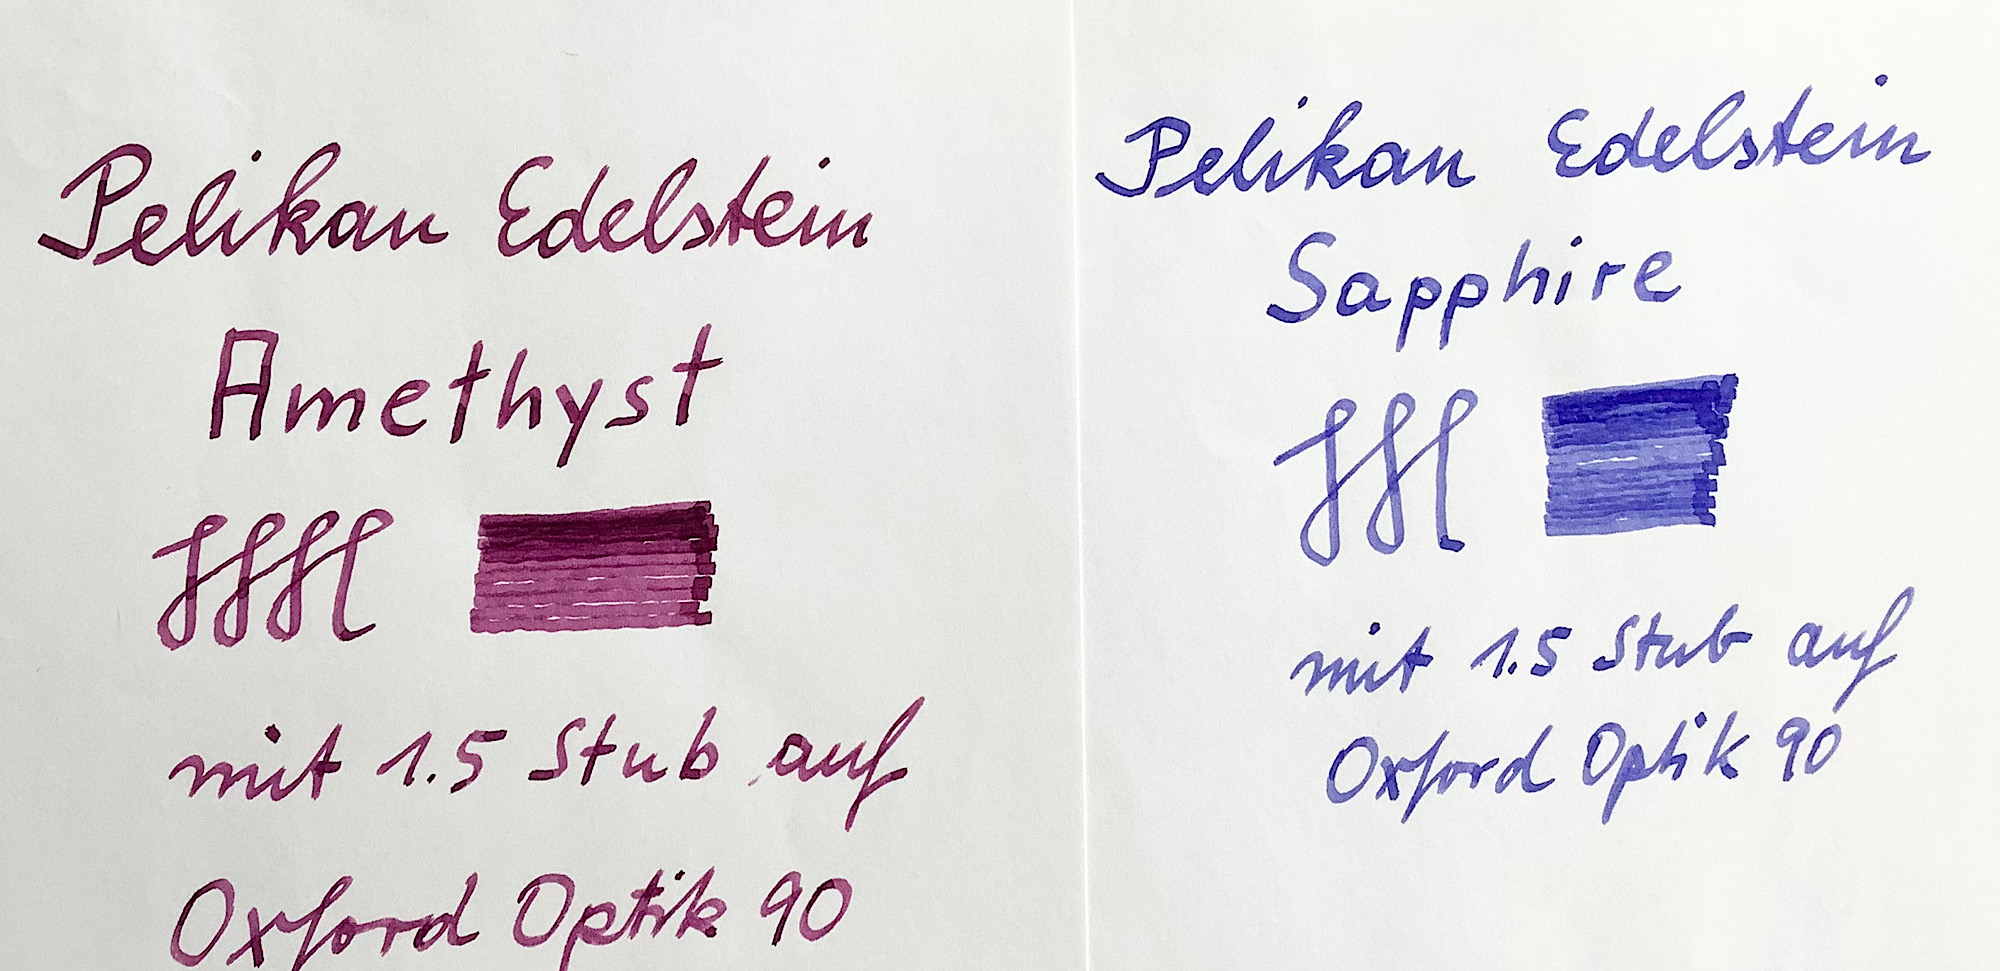 Pelikan Edelstein
Amethyst
mit 1.5 Stub auf
Oxford Optik 90
Pelikan Edelstein
Sapphire
mit 1.5 Stub auf
Oxford Optik 90